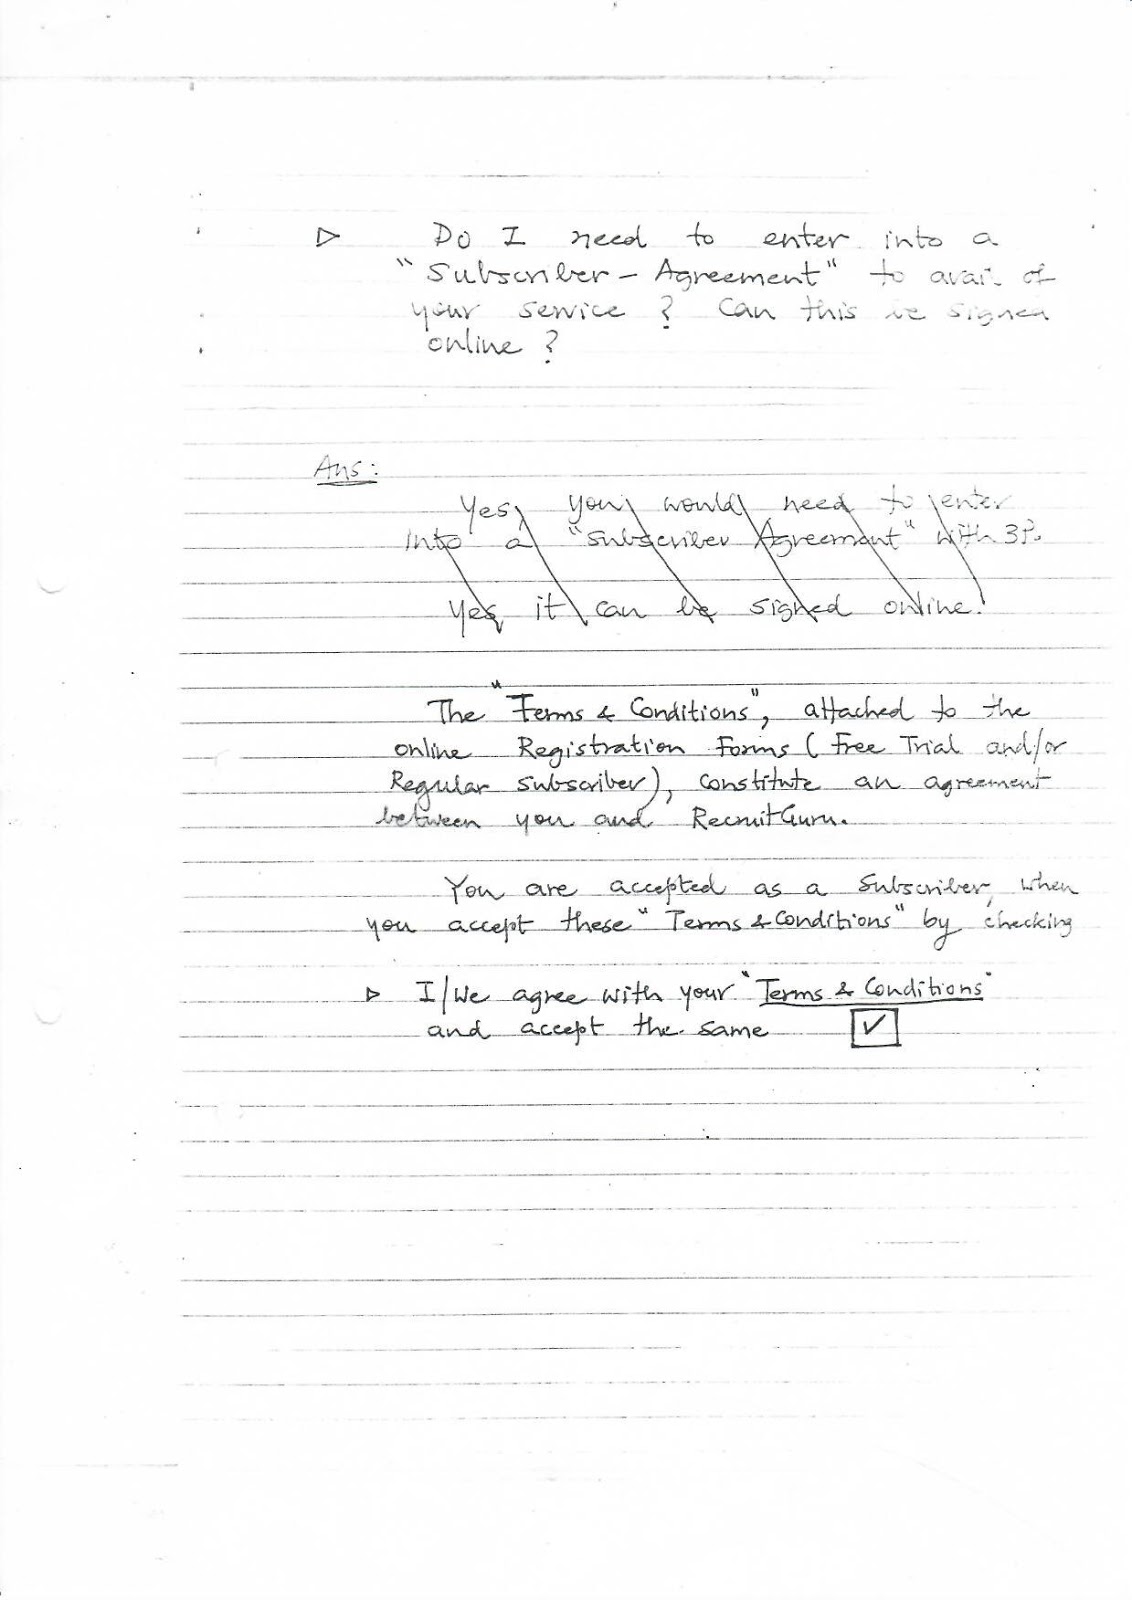 ▷ Do I need to enter into a
"Subscriber - Agreement" to avail of
your service ? Can this be signed
online ?
Ans :
Yes, you would need to enter
into a "Subscriber Agreement" with 3P.
Yes, it can be signed online.
The "Terms & Conditions", attached to the
online Registration Forms ( Free Trial and/or
Regular Subscriber), constitute an agreement
between you and RecruitGuru.
You are accepted as a Subscriber, when
you accept these "Terms & Conditions" by checking
▷ I/We agree with your "Terms & Conditions"
and accept the same ☑